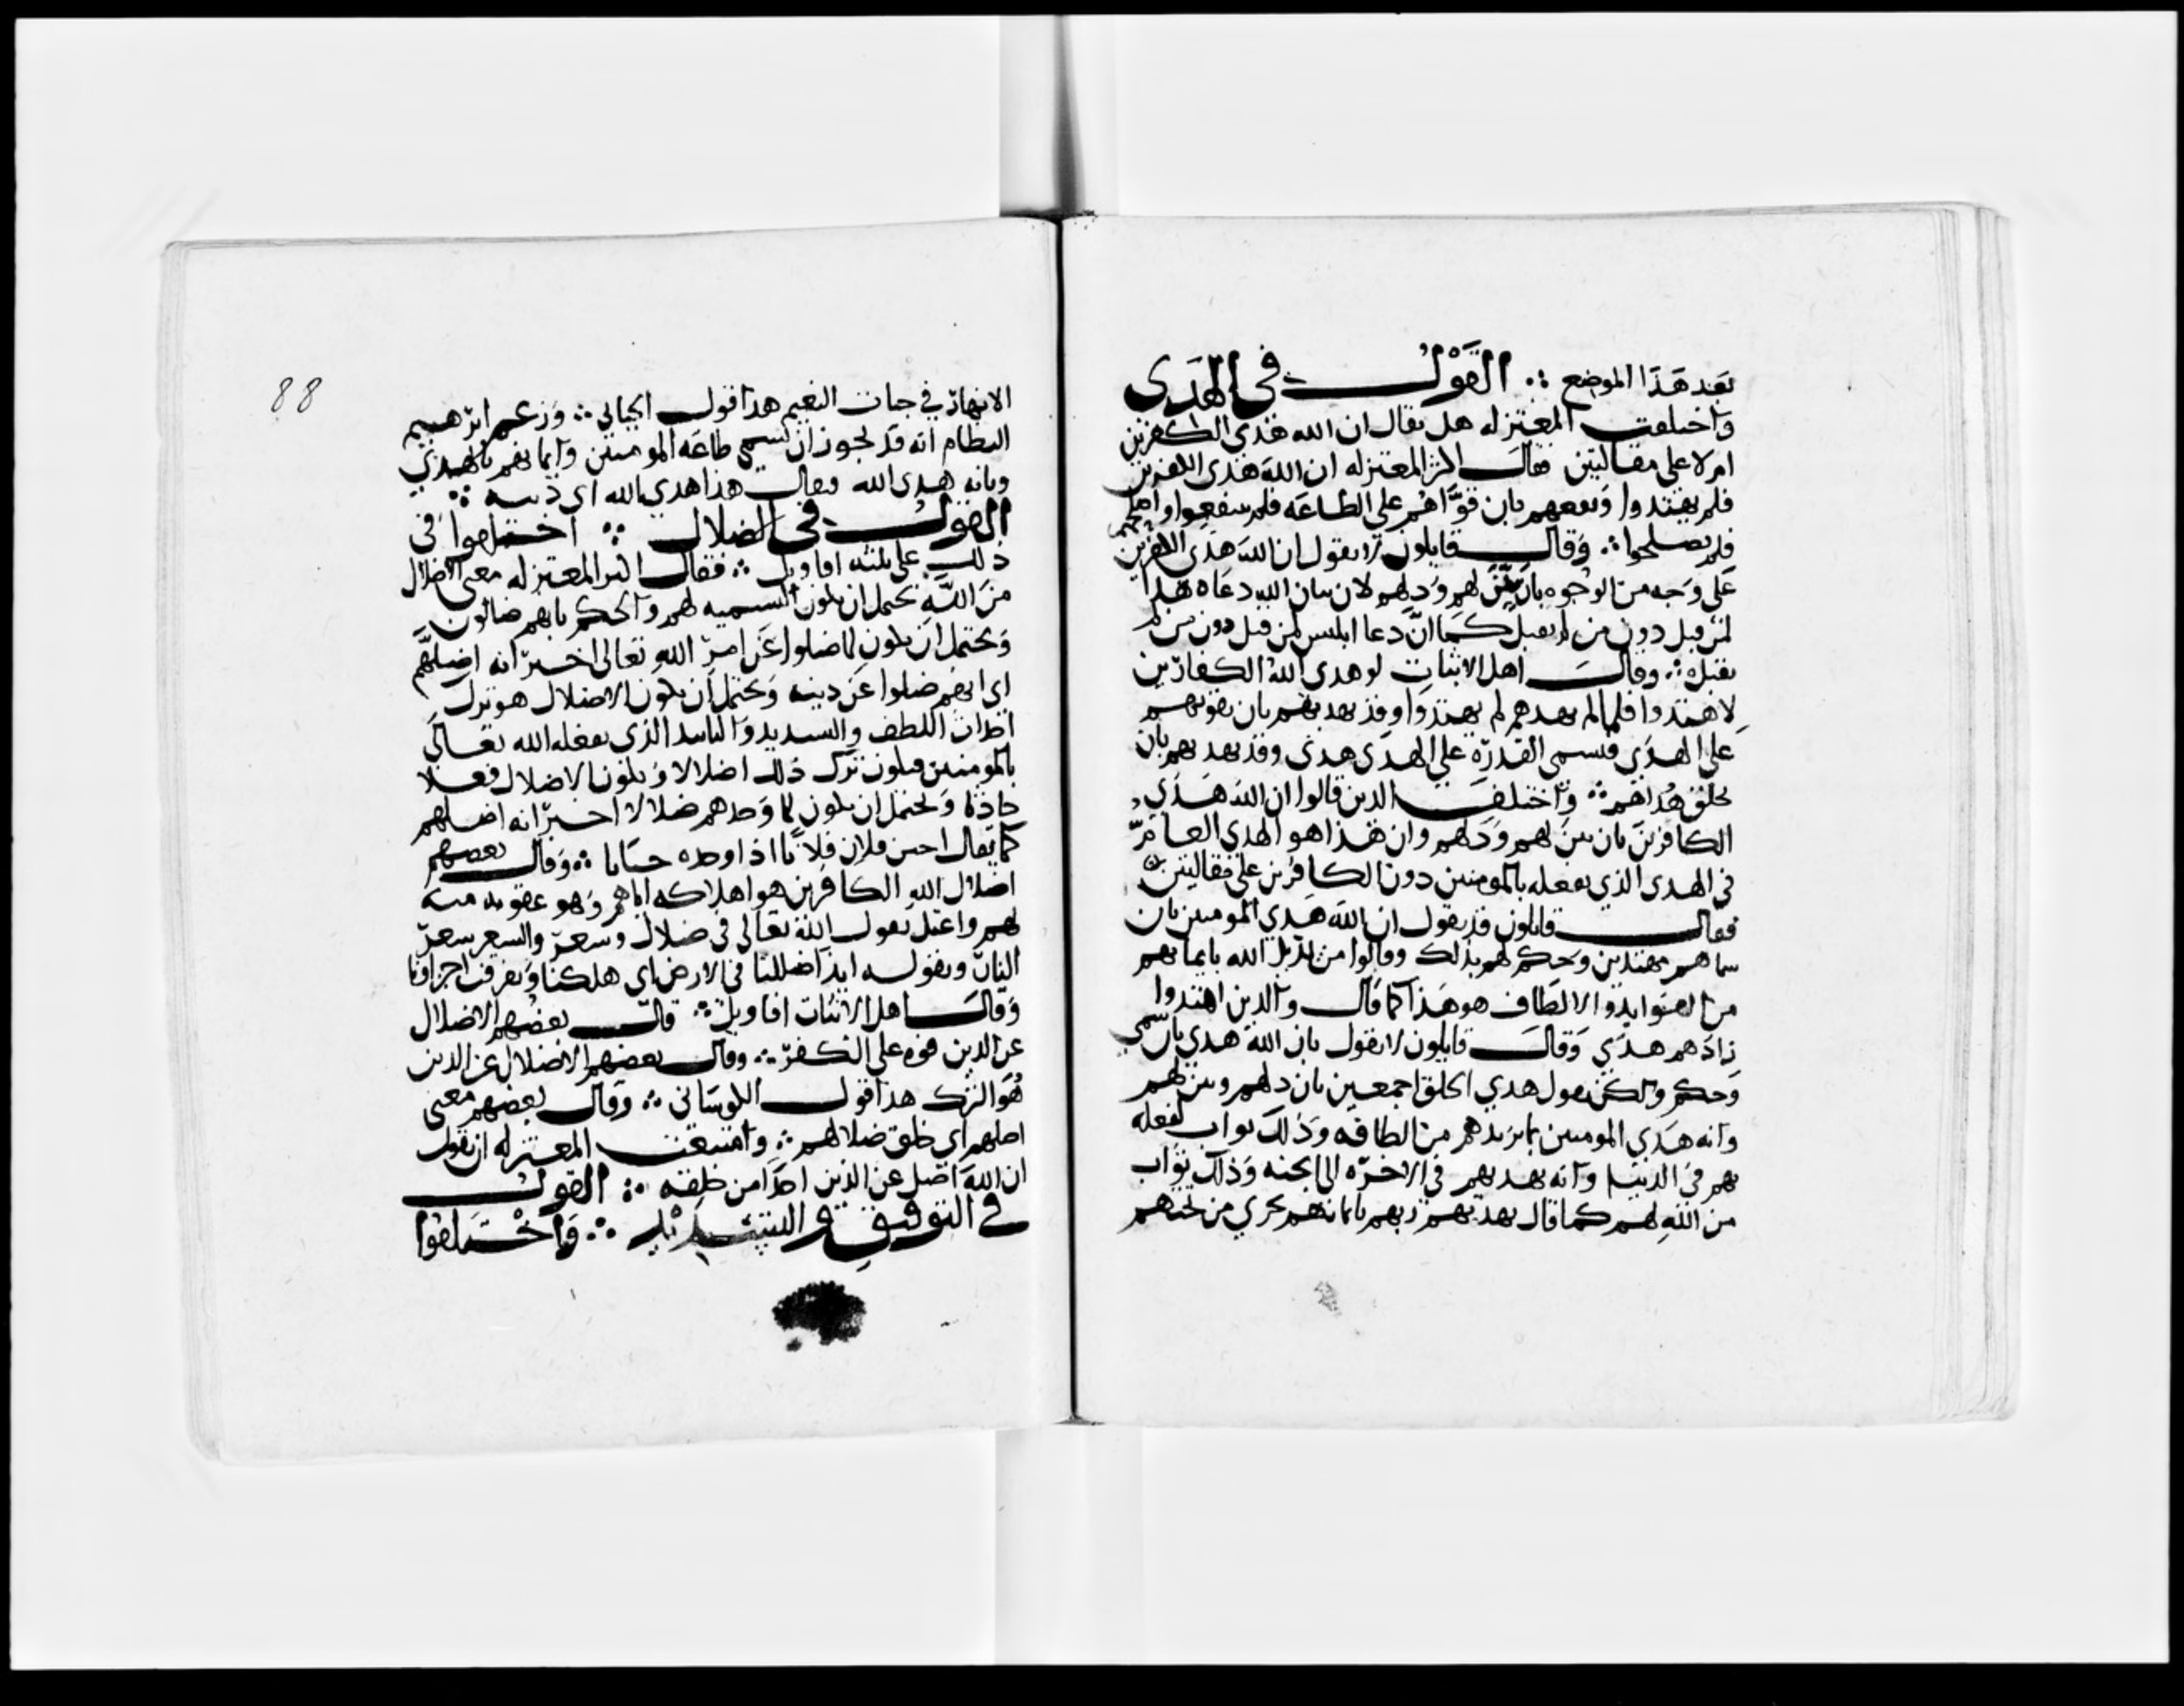 بعد هذا الموضع ∴ القول في الهدى
واختلفت المعتزله هل يقال ان الله هدى الكفرين
ام لا على مقالتين فقال اكثر المعتزله ان الله هدى الكفرين
فلم يهتدوا ونفعهم بان قواهم على الطاعه فلم ينتفعوا واصلحهم
فلم يصلحوا ∴ وقال قايلون لا نقول ان الله هدى الكفرين
على وجه من الوجوه بان بين لهم ودلهم لان بيان الله ودعاه هدا
لمن قبل دون من لم يقبل كما ان دعا ابليس لمن قبل دون من لم
يقبله ∴ وقال اهل الاثبات لو هدى الله الكفارين
لاهتدوا فلما لم يهدهم لم يهتدوا وقد يهديهم بان يقويهم
على الهدى فتسمى القدره على الهدى هدى وقد يهديهم بان
يخلق هداهم ∴ واختلف الذين قالوا ان الله هدى
الكافرين بان بين لهم ودلهم وان هذا هو الهدى العام
في الهدى الذي يفعله بالمومنين دون الكافرين على مقالتين
فقال قايلون قد نقول ان الله هدى المومنين بان
سماهم مهتدين وحكم لهم بذلك وقالوا من يزيد الله بايمانهم
من الفوايد والالطاف هو هدا كما قال والذين اهتدوا
زادهم هدى وقال قايلون لا نقول بان الله هدى بان سمى
وحكم ولكن نقول هدى الخلق اجمعين بان دلهم وبين لهم
وانه هدى المومنين بما يزيدهم من الطافه وذلك ثواب يفعله
بهم في الدنيا وانه يهديهم في الاخره الى الجنه وذلك ثواب
من الله لهم كما قال يهديهم ربهم بايمانهم تجري من تحتهم
88
الانهار في جنات النعيم هذا قول الجبائي ∴ وزعم ابرهيم
النظام انه قد يجوز ان يسمى طاعه المومنين وايمانهم بالهدى
وبانه هدى الله فيقال هذا هدى الله اي دينه ∴
القول في الضلال ∴ اختلفوا في
ذلك على ثلثه اقاويل ∴ فقال اكثر المعتزله معنى الاضلال
من الله يحتمل ان يكون التسميه لهم والحكم بانهم ضالون
ويحتمل ان يكون لما ضلوا عن امر الله تعالى اخبر انه اضلهم
اي انهم ضلوا عن دينه ويحتمل ان يكون الاضلال هو ترك
احداث اللطف والتسديد والتاييد الذي يفعله الله تعالى
بالمومنين فيكون ترك ذلك اضلالا ويكون الاضلال فعلا
حادثا ويحتمل ان يكون لما وجدهم ضلالا اخبر انه اضلهم
كما يقال اجبن فلان فلانا اذا وجده جبانا ∴ وقال بعضهم
اضلال الله الكافرين هو اهلاكه اياهم وهو عقوبه منه
لهم واعتل بقول الله تعالى في ضلال وسعر والسعر سعر
النار وبقوله ايذا ضللنا في الارض اي هلكنا وتفرقت اجزاونا
وقال اهل الاثبات اقاويل ∴ قال بعضهم الاضلال
عن الدين قوه على الكفر ∴ وقال بعضهم الاضلال عن الدين
هو الترك هذا قول الكوساني ∴ وقال بعضهم معنى
اضلهم اي خلق ضلالهم ∴ وامتنعت المعتزله ان تقول
ان الله اضل عن الدين احدا من خلقه ∴ القول
في التوفيق والتسديد ∴ واختلفوا